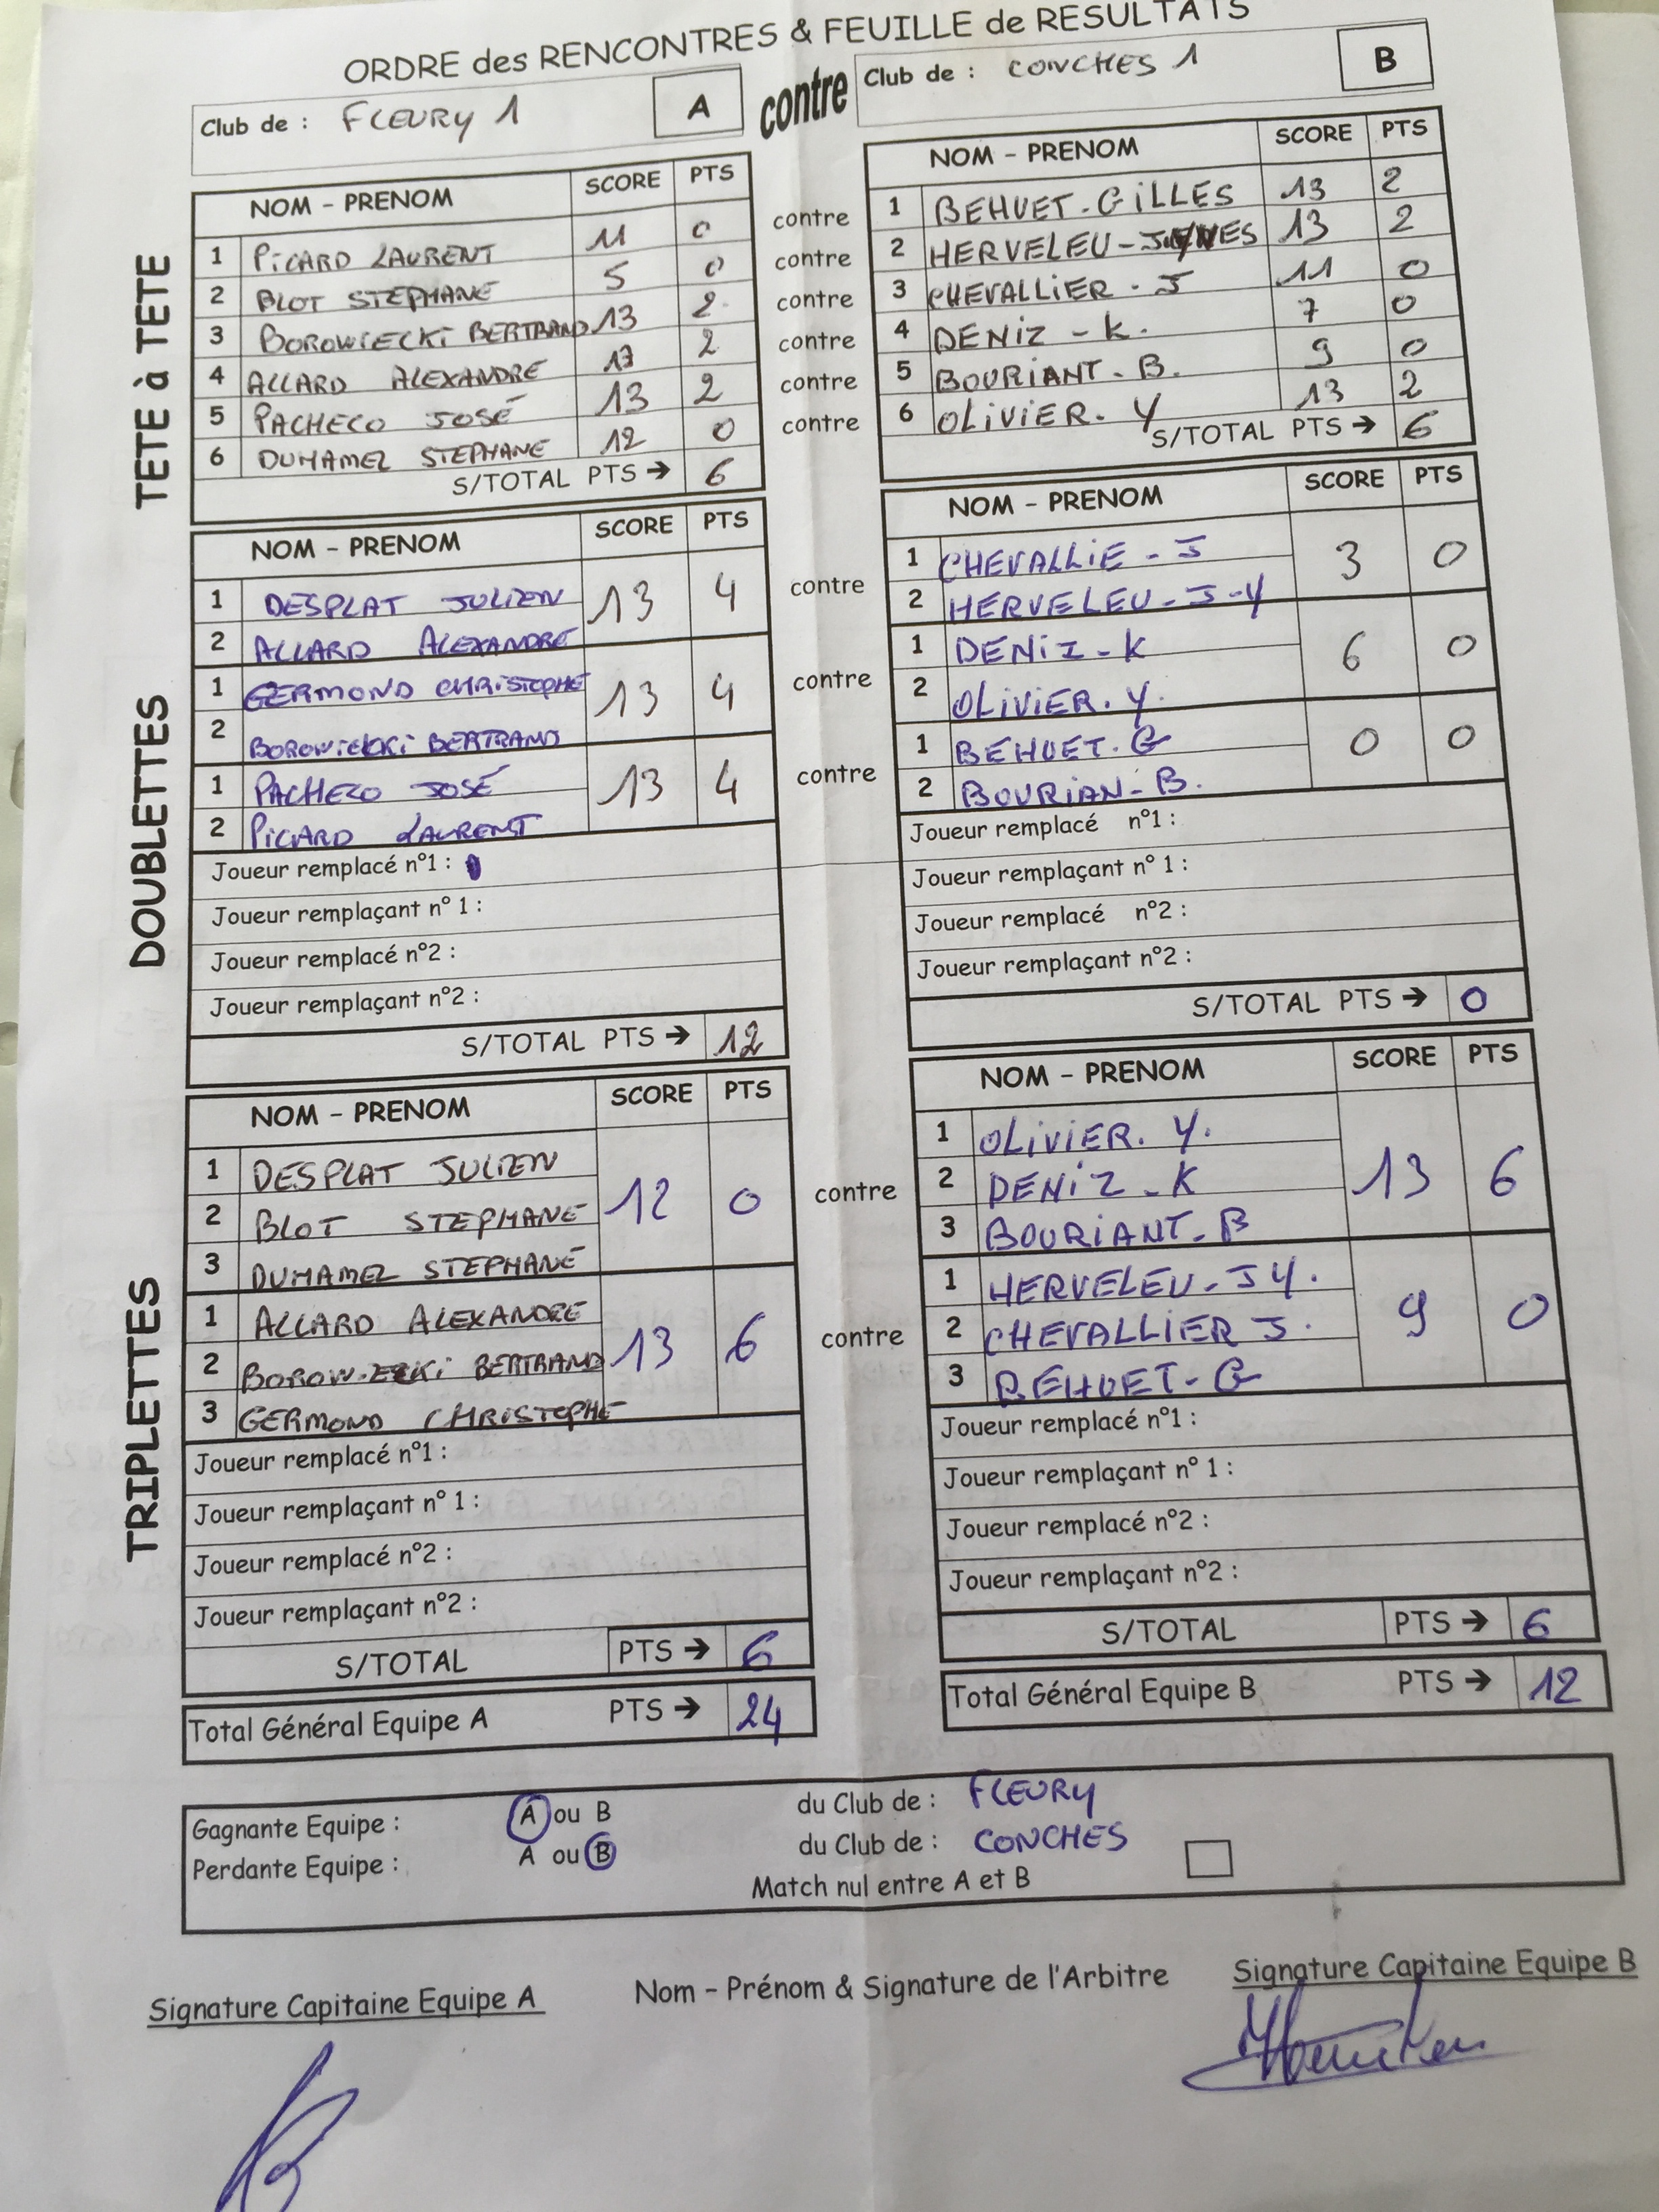 ORDRE des RENCONTRES & FEUILLE de RESULTATS
Club de : FLEURY 1 A contre Club de : CONCHES 1 B
TETE à TETE
NOM - PRENOM SCORE PTS
1 PICARD LAURENT 11 0
2 BLOT STEPHANE 5 0
3 BOROWIECKI BERTRAND 13 2
4 ALLARD ALEXANDRE 13 2
5 PACHECO JOSÉ 13 2
6 DUHAMEL STEPHANE 12 0
S/TOTAL PTS → 6
contre
contre
contre
contre
contre
contre
NOM - PRENOM SCORE PTS
1 BEHUET - GILLES 13 2
2 HERVELEU - 13 2
3 CHEVALLIER - J 11 0
4 DENIZ - K. 7 0
5 BOURIANT - B. 9 0
6 OLIVIER. Y 13 2
S/TOTAL PTS → 6
DOUBLETTES
NOM - PRENOM SCORE PTS
1 DESPLAT JULIEN 13 4
2 ALLARD ALEXANDRE
1 GERMOND CHRISTOPHE 13 4
2 BOROWIECKI BERTRAND
1 PACHECO JOSÉ 13 4
2 PICARD LAURENT
Joueur remplacé n°1 :
Joueur remplaçant n° 1 :
Joueur remplacé n°2 :
Joueur remplaçant n°2 :
S/TOTAL PTS → 12
contre
contre
contre
NOM - PRENOM SCORE PTS
1 CHEVALLIE - J 3 0
2 HERVELEU - J-Y
1 DENIZ - K 6 0
2 OLIVIER. Y.
1 BEHUET. G 0 0
2 BOURIAN - B.
Joueur remplacé n°1 :
Joueur remplaçant n° 1 :
Joueur remplacé n°2 :
Joueur remplaçant n°2 :
S/TOTAL PTS → 0
TRIPLETTES
NOM - PRENOM SCORE PTS
1 DESPLAT JULIEN 12 0
2 BLOT STEPHANE
3 DUHAMEL STEPHANE
1 ALLARD ALEXANDRE 13 6
2 BOROWIECKI BERTRAND
3 GERMOND CHRISTOPHE
Joueur remplacé n°1 :
Joueur remplaçant n° 1 :
Joueur remplacé n°2 :
Joueur remplaçant n°2 :
S/TOTAL PTS → 6
Total Général Equipe A PTS → 24
contre
contre
NOM - PRENOM SCORE PTS
1 OLIVIER. Y. 13 6
2 DENIZ - K
3 BOURIANT - B
1 HERVELEU - JY. 9 0
2 CHEVALLIER J.
3 BEHUET - G
Joueur remplacé n°1 :
Joueur remplaçant n° 1 :
Joueur remplacé n°2 :
Joueur remplaçant n°2 :
S/TOTAL PTS → 6
Total Général Equipe B PTS → 12
Gagnante Equipe : A ou B du Club de : FLEURY
Perdante Equipe : A ou B du Club de : CONCHES
Match nul entre A et B
Signature Capitaine Equipe A Nom - Prénom & Signature de l'Arbitre Signature Capitaine Equipe B